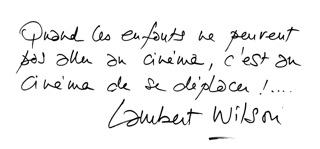 Quand les enfants ne peuvent
pas aller au cinéma, c'est au
cinéma de se déplacer !....
Lambert Wilson